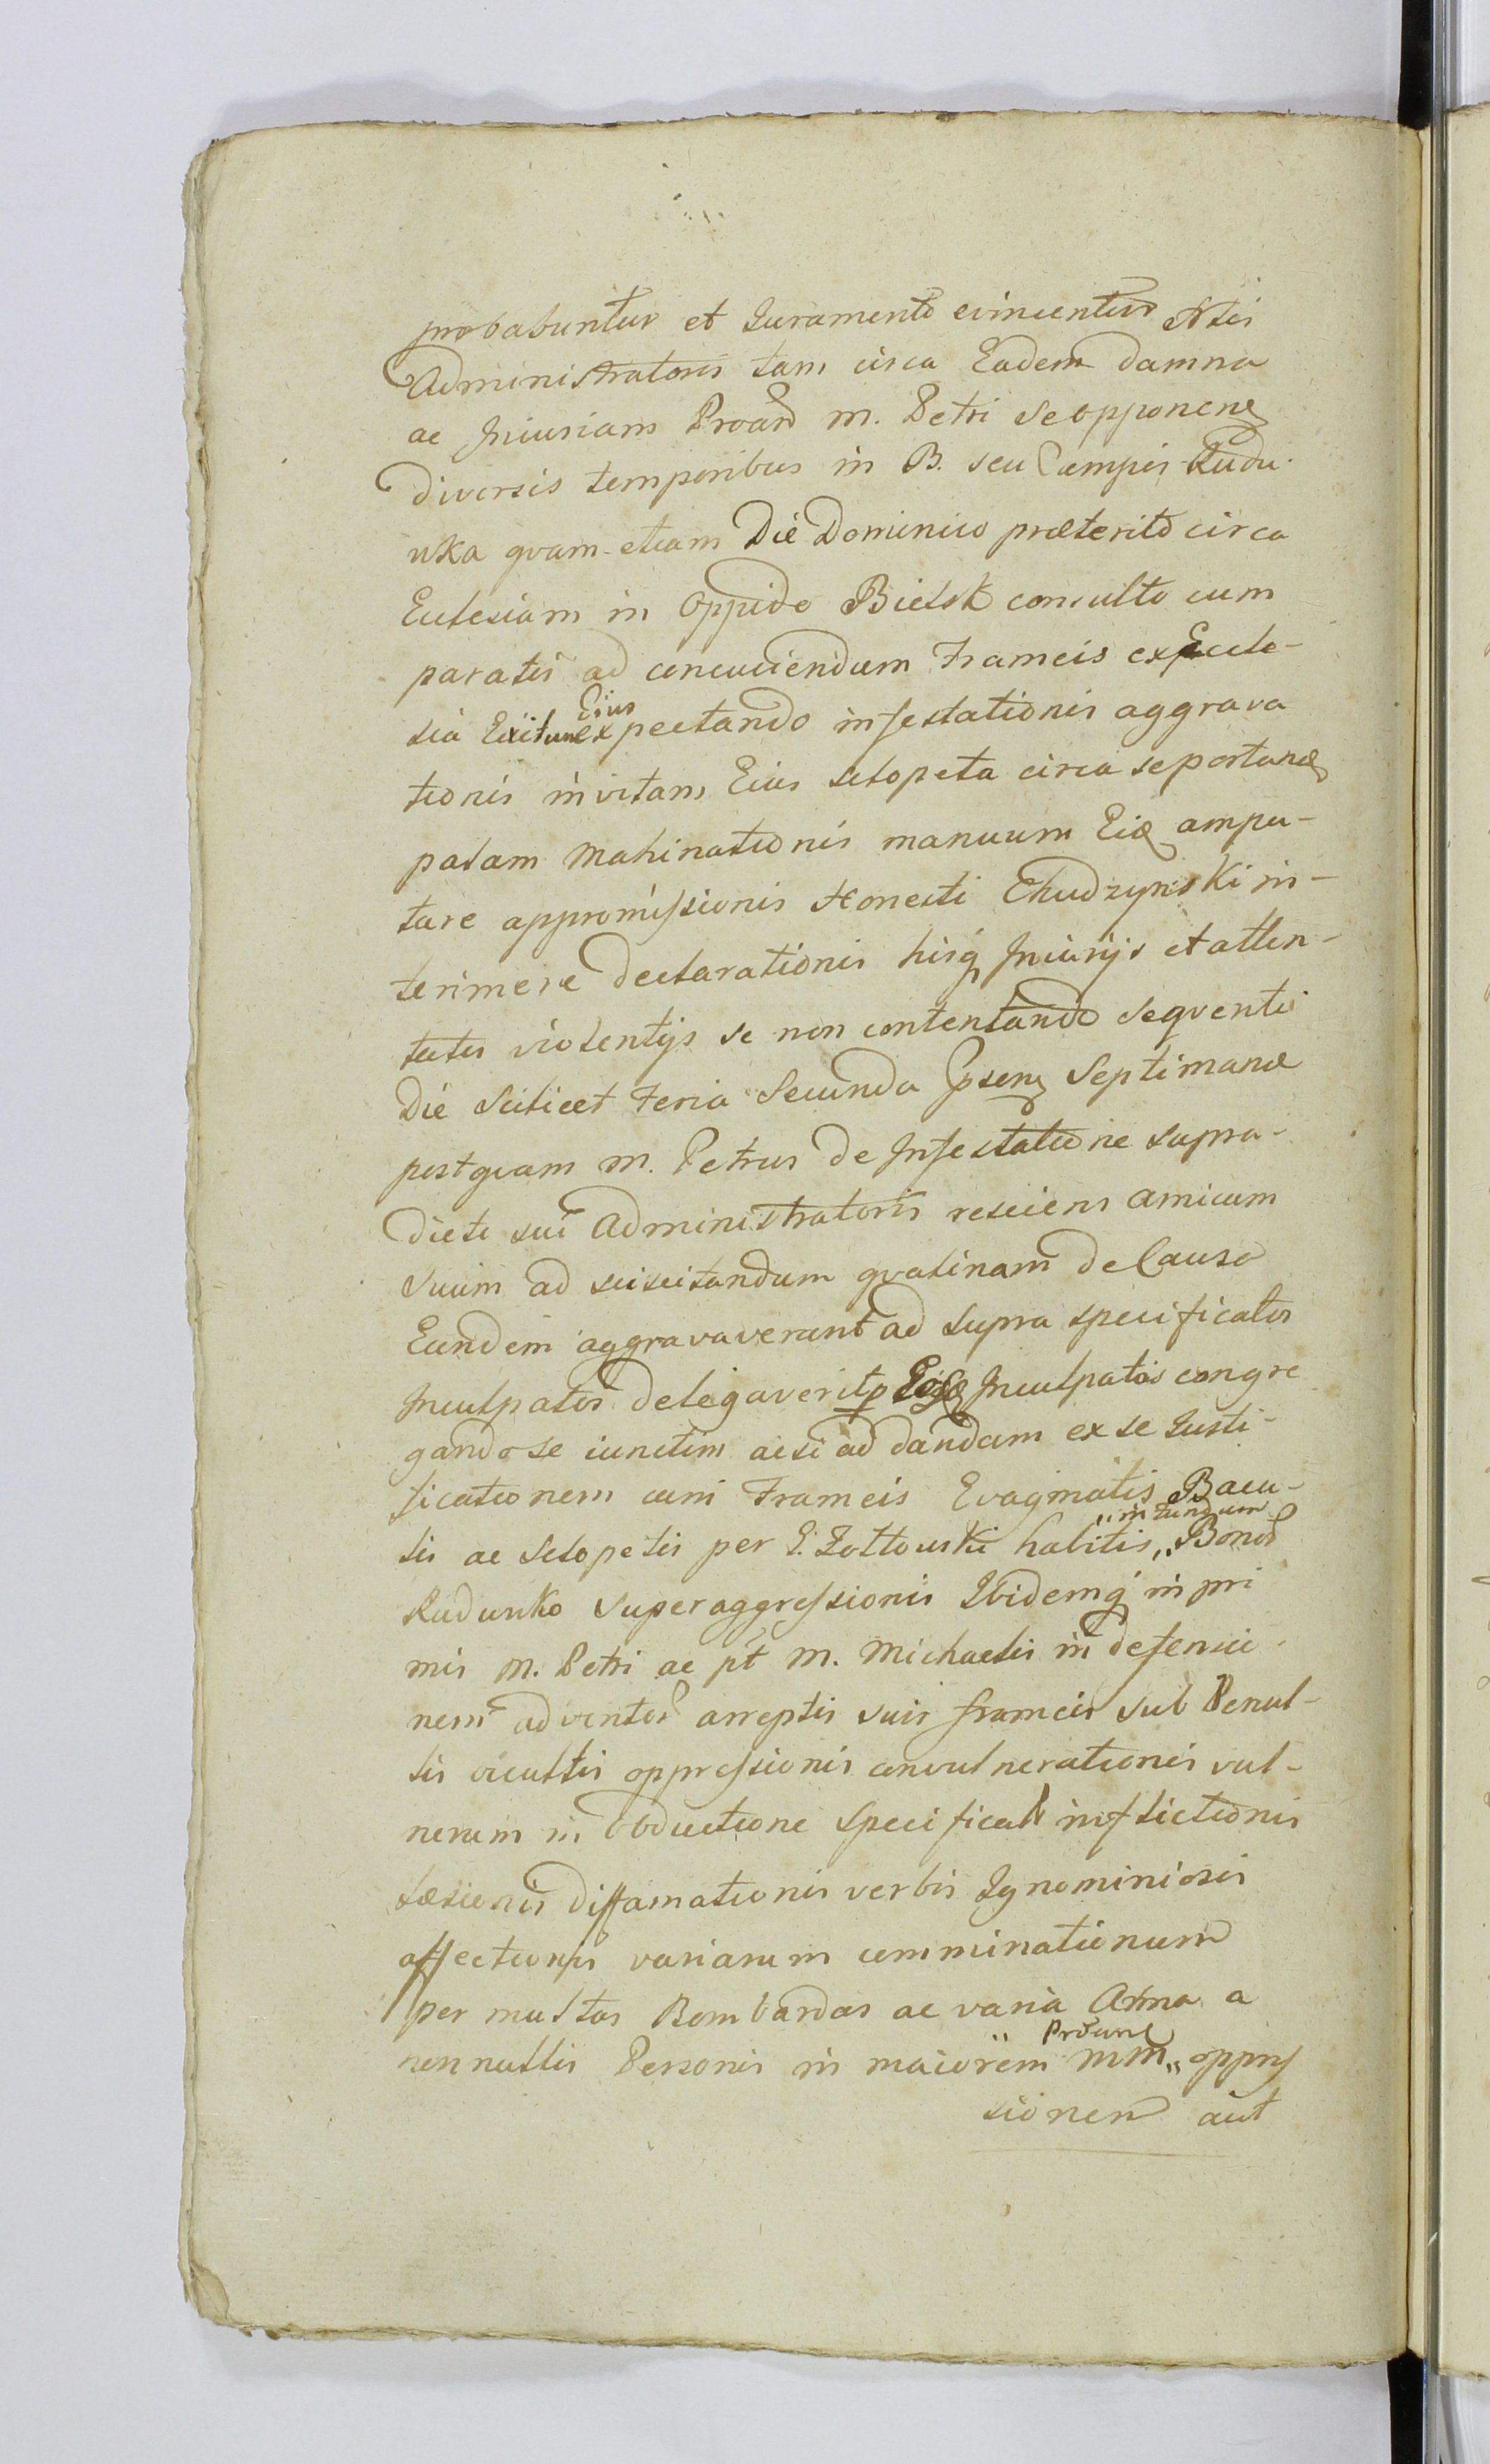 probabuntur et Juramento evincentur Ntis
Administratoris tam circa Eadem damna
ac Iniuriam Proãrd M. Petri se opponen
diversis temporibus in B. seu Campis Rudu
wka qvam etiam Die Dominico præterito circa
Eclesiam in Oppido Bielsk consulto cum
paratis ad concuciendum Frameis ex Eccle-
sia Exitum Eius expectando infestationis aggrava
tionis invitam Eius sclopeta circa se portand
palam Mahinationis manuum Eiq ampu-
tare appromissionis Honesti Chudzynski in-
terimere declarationis hisq Iniurijs et atten-
tatis violentijs se non contentando seqventi
Die Scilicet Feria Secunda Psen Septimanæ
postqvam M. Petrus de Infestatione supra-
dicti sui Administratoris resciens amicum
suum ad sciscitandum qvatinam de Causa
Eundem aggravaverant ad supra specificatos
Inculpatos delegaverit Inculpatos congre
gando se iunctim acsi ad dandam ex se Iusti-
ficationem cum Frameis Evaginatis Bacu-
lis ac Sclopetis per G. Zoltowski habitis, "in fundum" Bonor
Rudunko superaggressionis Ibidemq in pri
mis M. Petri ac pt M. Michaelis in defensio
nem adventos arreptis suis frameis sub Penul-
lis ocultis oppressionis convulnerationis vul-
nerum in Obductione specificat inflictionis
læsionis diffamationis verbis Ignominiosis
affectionis variarum comminationum
per multas Bombardas ac varia Arma a
nonnullis Personis in maiorem MM Prdune oppres
sionem aut